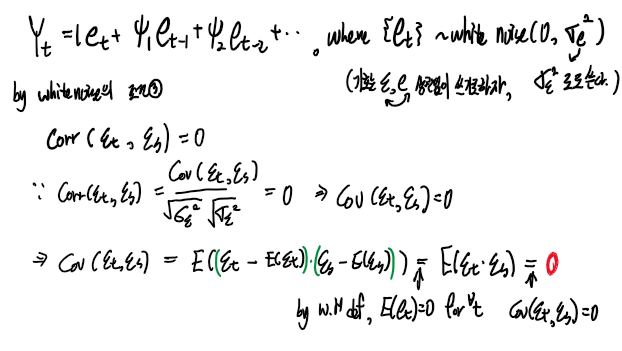 Y_t = 1e_t + ψ_1 e_{t-1} + ψ_2 e_{t-2} + ⋯ . where {e_t} ~ white noise (0, σ_e^2)
by white noise의 조건③
(기호 ε, e 상관없이 쓰기로하자, σ_ε^2 로도쓴다.)
Corr(ε_t, ε_s) = 0
∵ Corr(ε_t, ε_s) = Cov(ε_t, ε_s) / √σ_ε^2 √σ_ε^2 = 0 ⇒ Cov(ε_t, ε_s) = 0
⇒ Cov(ε_t, ε_s) = E((ε_t − E(ε_t))·(ε_s − E(ε_s))) = E(ε_t·ε_s) = 0
by W.N def, E(e_t)=0 for ∀t Cov(ε_t, ε_s)=0